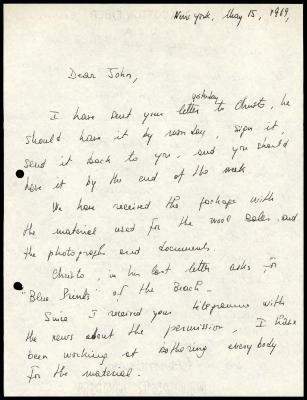 New York, May 15, 1969,
Dear John,
yesterday
I have sent your letter to Christo, he
should have it by monday, sign it,
send it back to you, and you should
have it by the end of the week
We have received the package with
the material used for the wool bales and
the photographs and documents.
Christo, in his last letter asks for
"Blue Prints" of the Beach.
Since I received your telegramme with
the news about the permission, I have
been working at bothering everybody
for the material.